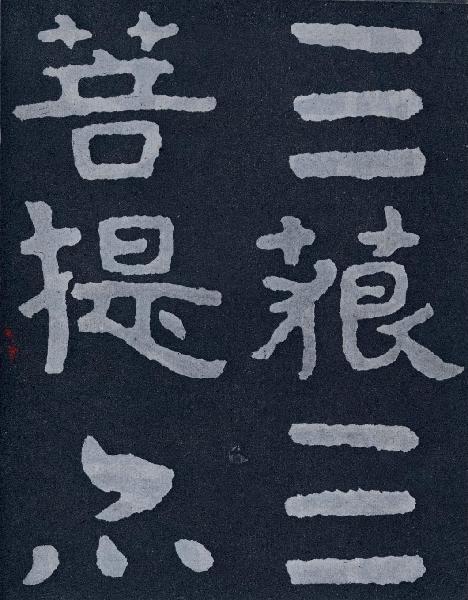 三藐三
菩提心